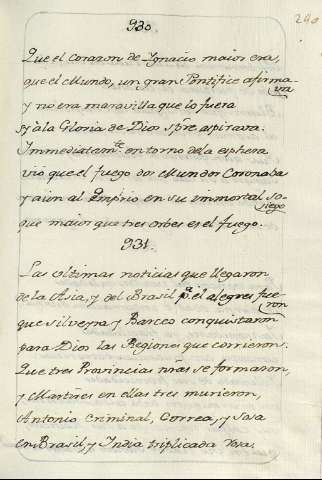 930.
240
Que el corazon de Ignacio maior era,
que el Mundo, un gran Pontifice afirma-
va
y no era maravilla que lo fuera
si à la Gloria de Dios spre aspirava:
Immediatemte en torno de la esphera
viò que el fuego dos Mundos Coronaba
y aùn al Empirio en su immortal so-
siego
que maior que tres orbes es el fuego.
931.
Las ultimas noticias que llegaron
de la Asia, y del Brasil pa el alegres fue-
ron
que Silveyra y Barceo conquistaron
para Dios las Regiones que corrieron.
Que tres Provincias nras se formaron,
y Martires en ellas tres murieron,
Antonio Criminal, Correa, y Sosa
en Brasil, y India triplicada Rosa.